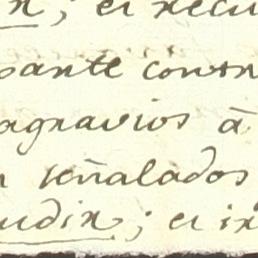 n; el recu
pante contr
agravios á
n señalados
udin; el in